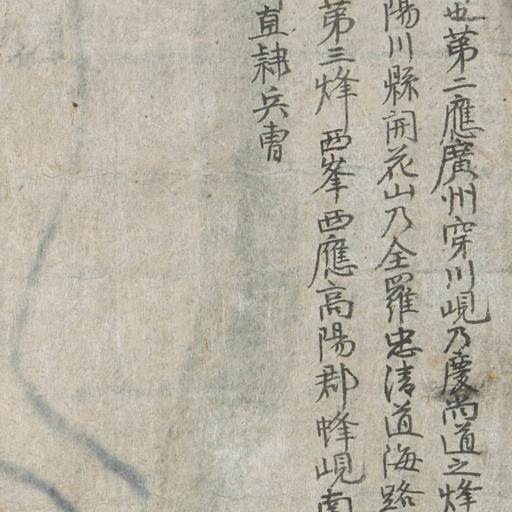 也第二應廣州穿川峴乃慶尚道之烽
陽川縣開花山乃全羅忠清道海路
第三烽西峯西應高陽郡蜂峴南
直隸兵曹